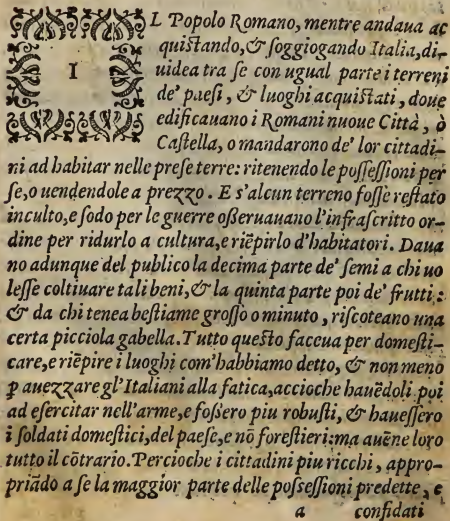 IL Popolo Romano, mentre andaua ac
quistando, & soggiogando Italia, di-
uidea tra se con ugual parte i terreni
de' paesi, & luoghi acquistati, doue
edificauano i Romani nuoue Città, ò
Castella, o mandarono de' lor cittadi-
ni ad habitar nelle prese terre: ritenendo le possessioni per
se, o uendendole a prezzo. E s'alcun terreno fosse restato
inculto, e sodo per le guerre osseruauano l'infrascritto or-
dine per ridurlo a cultura, e riẽpirlo d'habitatori. Daua
no adunque del publico la decima parte de' semi a chi uo
lesse coltiuare tali beni, & la quinta parte poi de' frutti:
& da chi tenea bestiame grosso o minuto, riscoteano una
certa picciola gabella. Tutto questo faceua per domesti-
care, e riẽpire i luoghi com'habbiamo detto, & non meno
ꝑ auezzare gl'Italiani alla fatica, accioche hauẽdoli poi
ad esercitar nell'arme, e fossero piu robusti, & hauessero
i soldati domestici, del paese, e nõ forestieri: ma auẽne loro
tutto il cõtrario. Percioche i cittadini piu ricchi, appro-
priãdo a se la maggior parte delle possessioni predette, e
a confidati